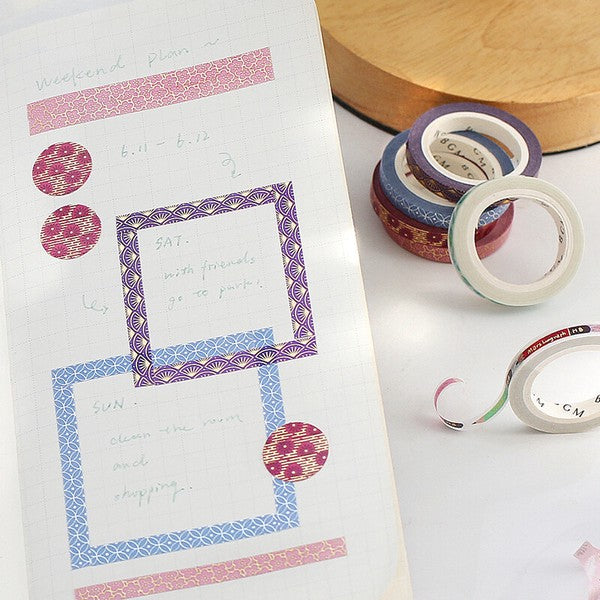 Weekend plan ~
6.11 - 6.12
SAT.
with friends
go to park!
SUN.
clean the room
and
shopping.
BGM
BGM